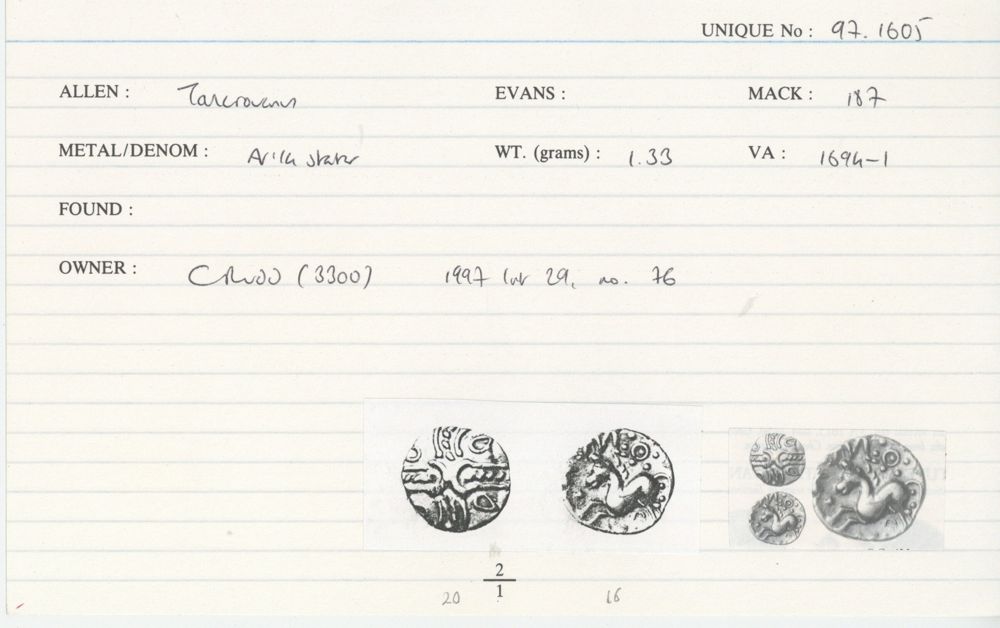 UNIQUE No : 97.1605
ALLEN : Tascrovanus EVANS : MACK : 187
METAL/DENOM : AV ¼ stater WT. (grams) : 1.33 VA : 1694-1
FOUND :
OWNER : CRUDD (3300) 1997 list 29, no. 76
2
1
20 16